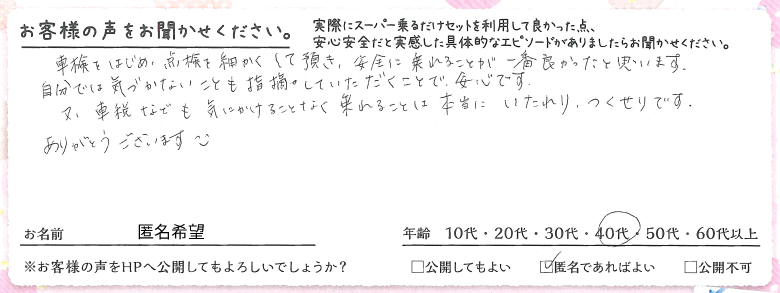 お客様の声をお聞かせください。
実際にスーパー乗るだけセットを利用して良かった点、
安心安全だと実感した具体的なエピソードがありましたらお聞かせください。
車検をはじめ、点検を細かくして頂き、安全に乗れることが一番良かったと思います。
自分では気づかないことも指摘していただくことで、安心です。
又、車税などでも気にかけることなく乗れることは本当にいたれり、つくせりです。
ありがとうございます
お名前 匿名希望
年齢 10代・20代・30代・40代・50代・60代以上
※お客様の声をHPへ公開してもよろしいでしょうか？ □公開してもよい ☑匿名であればよい □公開不可